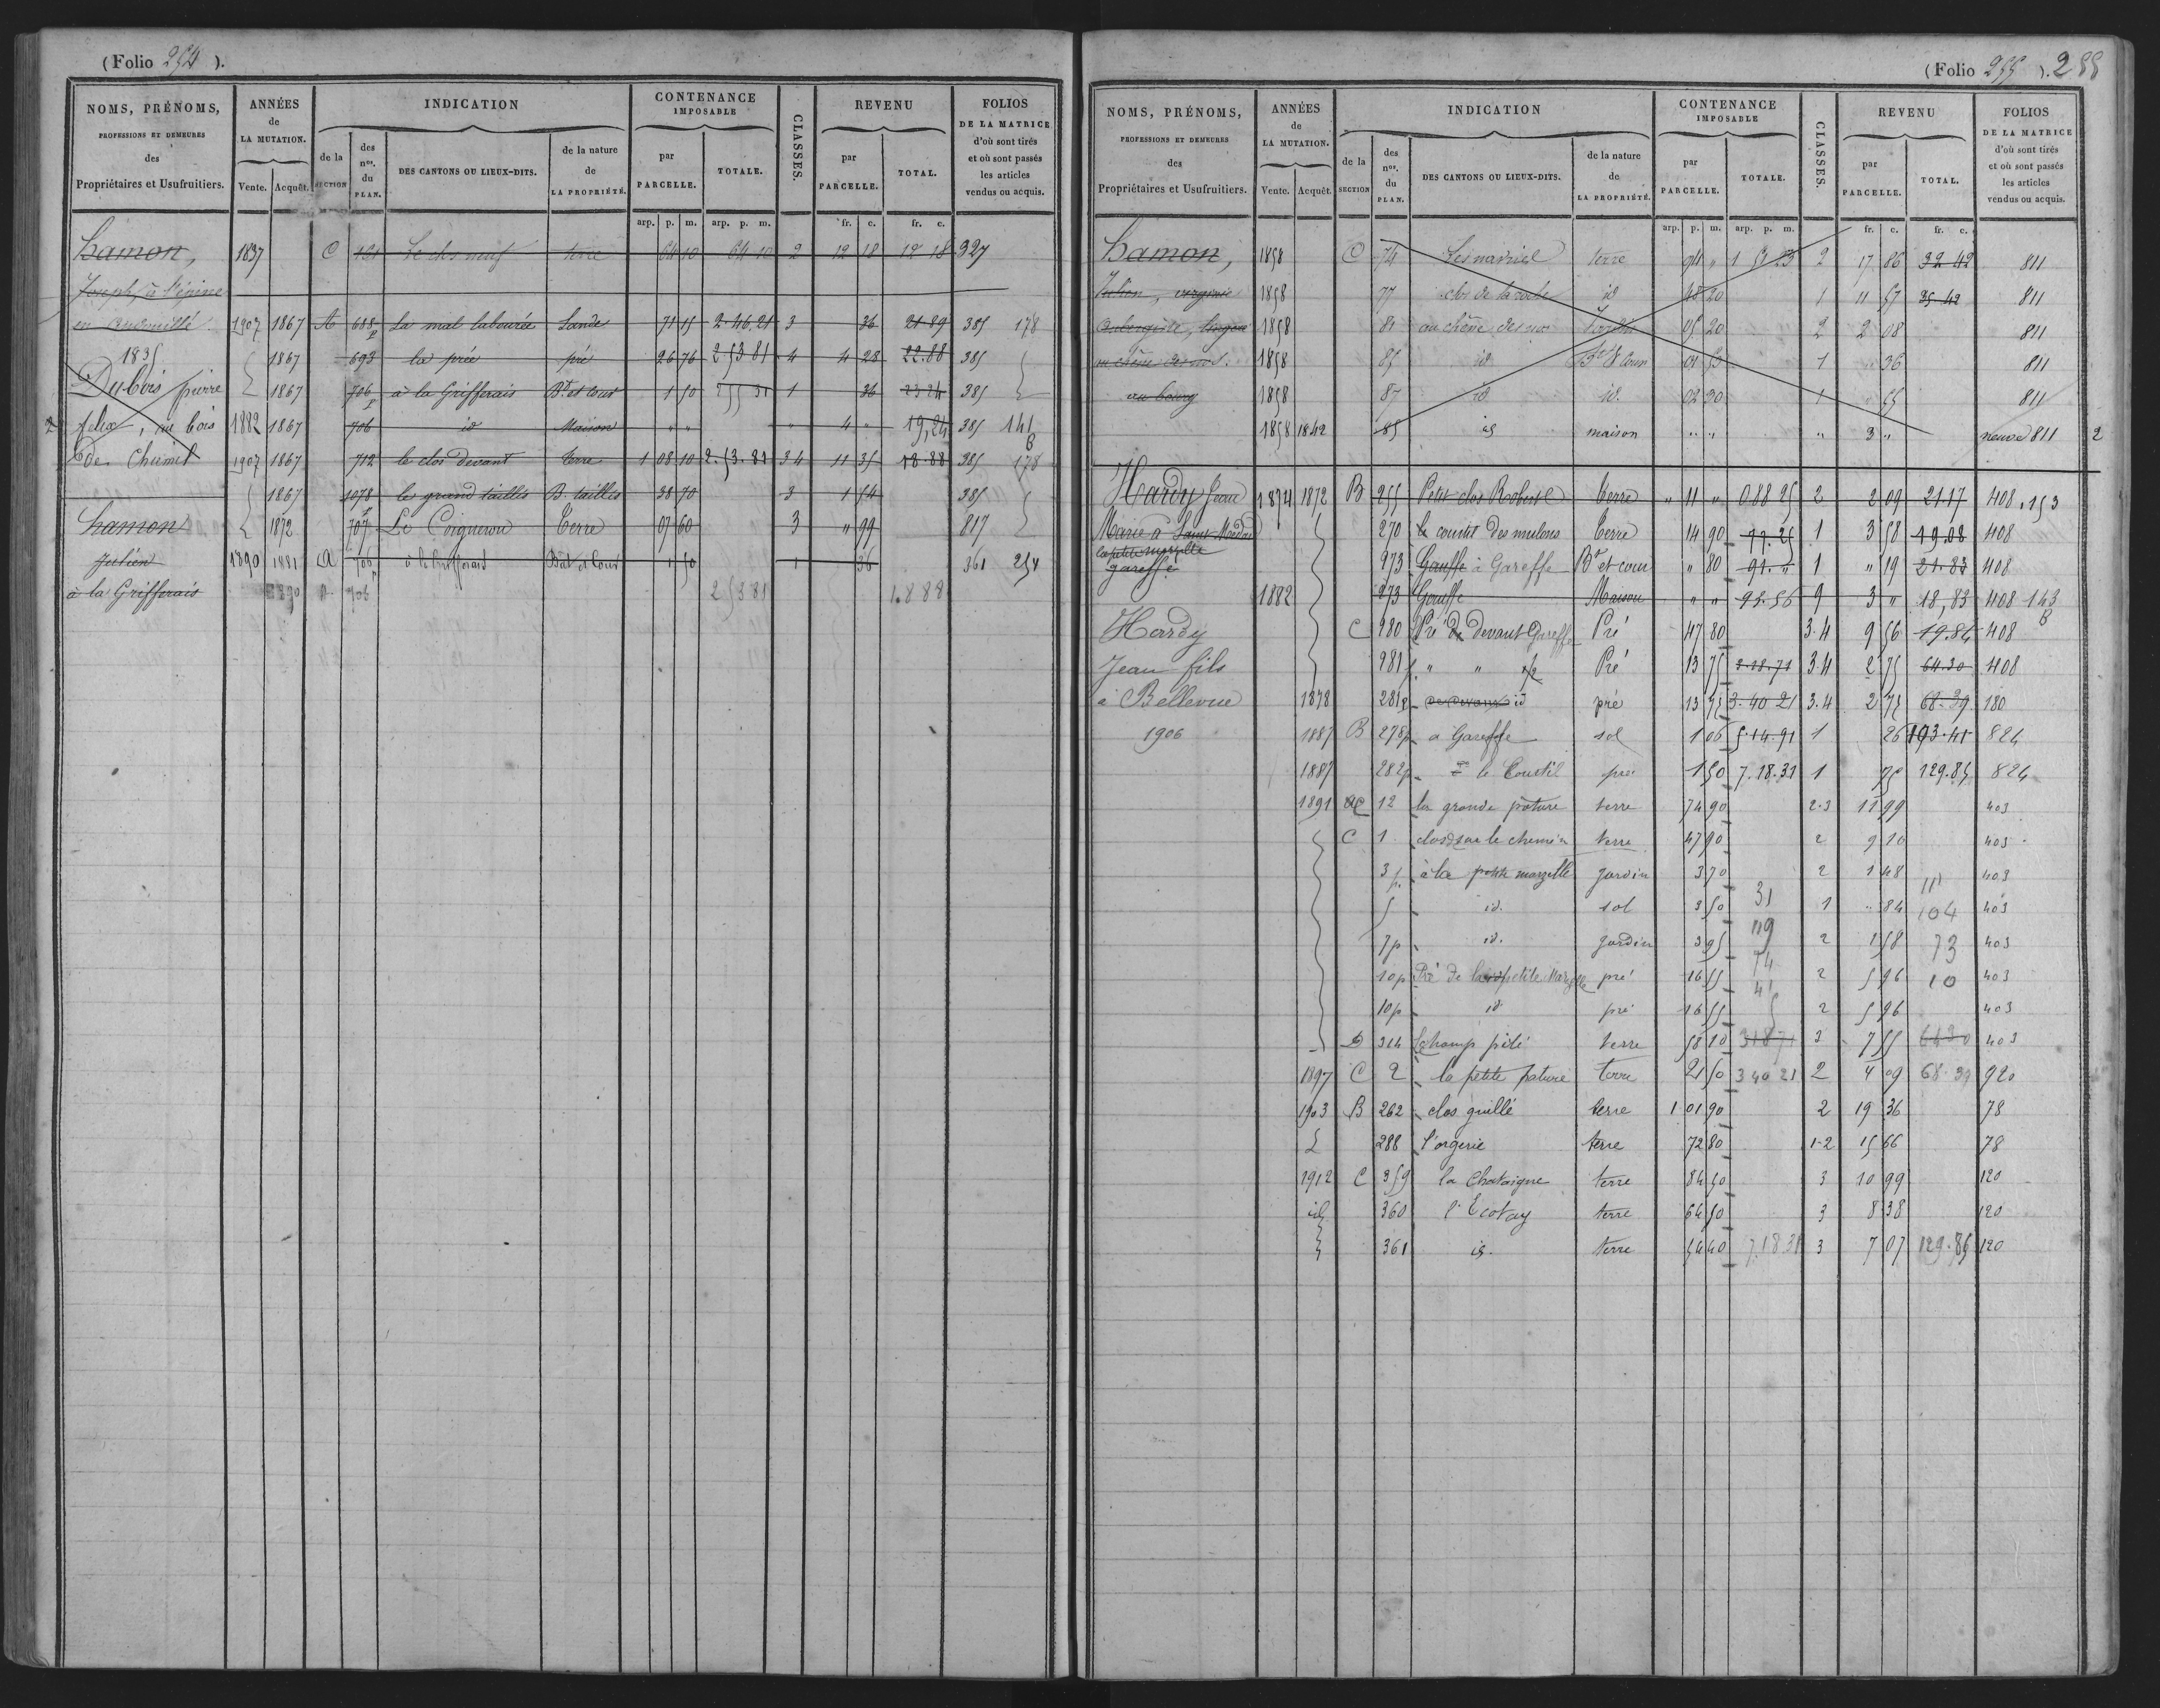 (Folio 254 ).
NOMS, PRÉNOMS, PROFESSIONS ET DEMEURES des Propriétaires et Usufruitiers.
ANNÉES de LA MUTATION. Vente. Acquêt.
INDICATION de la SECTION des nos. du PLAN. DES CANTONS OU LIEUX-DITS. de la nature de LA PROPRIÉTÉ.
CONTENANCE IMPOSABLE par PARCELLE. TOTALE.
CLASSES.
REVENU par PARCELLE. TOTAL.
FOLIOS DE LA MATRICE d'où sont tirés et où sont passés les articles vendus ou acquis.
arp. p. m. arp. p. m. fr. c. fr. c.
hamon, 1837 C 161 Le clos neuf terre 64 10 64 10 2 12 18 12 18 327
Joseph, à l'épine
en Andouillé 1907 1867 A 688p La mal labourée Lande 71 15 2.46.21 3 36 21-89 385 178
1835 1867 693 la prée pré 26 76 2.53 81 4 4 28 22.88 385
Dubois pierre 1867 706p à la Grifferais Bt et Cour 1 50 2 55 31 1 36 23 24 385
felix, au bois 1882 1867 706 id Maison " " " 4 " 19,24 385 141 B
de Chemil 1907 1867 712 le clos devant terre 1 08 10 2.53.81 3 4 11 35 18.88 385 178
1867 1078 le grand taillis B. taillis 38 70 3 1 54 385
hamon 1872 707p Le Coigneron Terre 07 60 3 " 99 817
Julien 1890 1881 A 706p à la Grifferais Bât et Cour 1 50 1 36 361 254
à la Grifferais 1890 A 706 2 53 81 18 88
(Folio 255 ). 288
NOMS, PRÉNOMS, PROFESSIONS ET DEMEURES des Propriétaires et Usufruitiers.
ANNÉES de LA MUTATION. Vente. Acquêt.
INDICATION de la SECTION des nos. du PLAN. DES CANTONS OU LIEUX-DITS. de la nature de LA PROPRIÉTÉ.
CONTENANCE IMPOSABLE par PARCELLE. TOTALE.
CLASSES.
REVENU par PARCELLE. TOTAL.
FOLIOS DE LA MATRICE d'où sont tirés et où sont passés les articles vendus ou acquis.
arp. p. m. arp. p. m. fr. c. fr. c.
hamon, 1858 C 74 terre 94 " 1 51 23 2 17 86 32 42 811
Julien, 1858 77 clos de la roche id 48 20 1 11 57 35-42 811
aubergiste, 1858 81 au chêne des nos 05 20 2 2 08 811
au chêne des nos. 1858 85 id Bt & Cour 01 53 1 " 36 811
au bourg 1858 87 id id. 02 30 1 " 55 811
1858 1842 85 id maison " " " 3 " neuve 811 2
Hardy Jean 1874 1872 B 255 Petit clos Robert Terre " 11 " 0.88 25 2 2 09 21.17 408.153
Marie à 270 le courtil des mulons Terre 14 90 77.25 1 3 58 19.08 408
la petite marzelle
gareffe 273 Gauffe à Gareffe Bt et cour " 80 91. " 1 " 19 21.83 408
1882 273 Gauffe Maison " " 93.56 9 3 " 18,83 408 143 B
Hardy C 280 Pré de devant Gareffe Pré 47 80 3.4 9 56 19.84 408
Jean fils 281p " " Pré 13 75 3.18.71 3.4 2 75 64.30 408
à Bellevue 1878 281p id pré 13 75 3.40 21 3.4 2 75 68.39 180
1906 1887 B 278p à Gareffe sol 1 06 5.14.91 1 26 103.41 824
1887 282p le Courtil pré 1 50 7.18.31 1 75 129.85 824
1891 C 12 la grande pâture terre 74 90 2-3 11 99 403
C 1 clos sur le chemin terre 47 90 2 9 10 403
3p à la petite marzelle jardin 3 70 2 1 48 111 403
5 id. sol 3 50 31 1 " 84 104 403
7p id. jardin 3 95 119 2 1 58 73 403
10p Pré de la petite Marzelle pré 16 55 74 2 5 96 10 403
10p id pré 16 55 41 2 5 96 403
D 314 Champ pilé terre 58 10 3 18 71 3 7 55 64 30 403
1897 C 2 la petite pature terre 21 50 3 40 21 2 4 09 68.39 920
1903 B 262 clos guillé terre 1 01 90 2 19 36 78
288 l'orgerie terre 72 80 1-2 15 66 78
1912 C 359 la Chataigne terre 84 50 3 10 99 120
id 360 l'Ecotay terre 64 50 3 8 38 120
361 id. terre 54 40 7.18 31 3 7 07 129.85 120